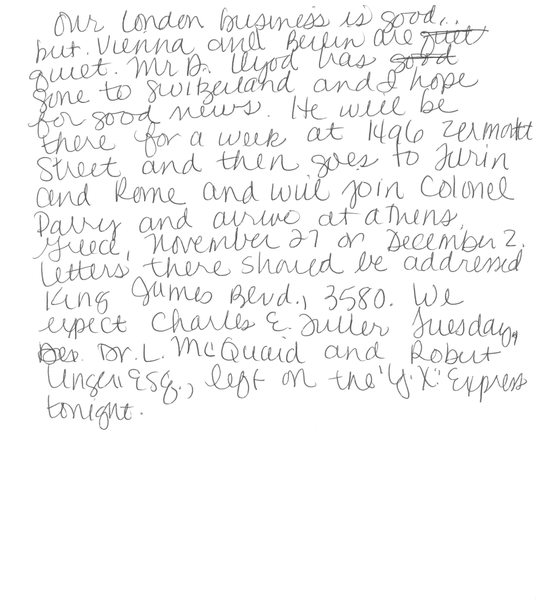 Our London business is good,
but Vienna and Berlin are quiet
quiet. Mr D. Llyod has good
gone to Switzerland and I hope
for good news. He will be
there for a week at 1496 Zermott
Street and then goes to Turin
and Rome and will join Colonel
Parry and arrive at athens,
Greece, November 27 or December 2.
Letters there should be addressed
King James Blvd., 3580. We
expect Charles E. Fuller Tuesday,
Dr. L. McQuaid and Robert
Unger, Esq., left on the "Y.X." Express
tonight.